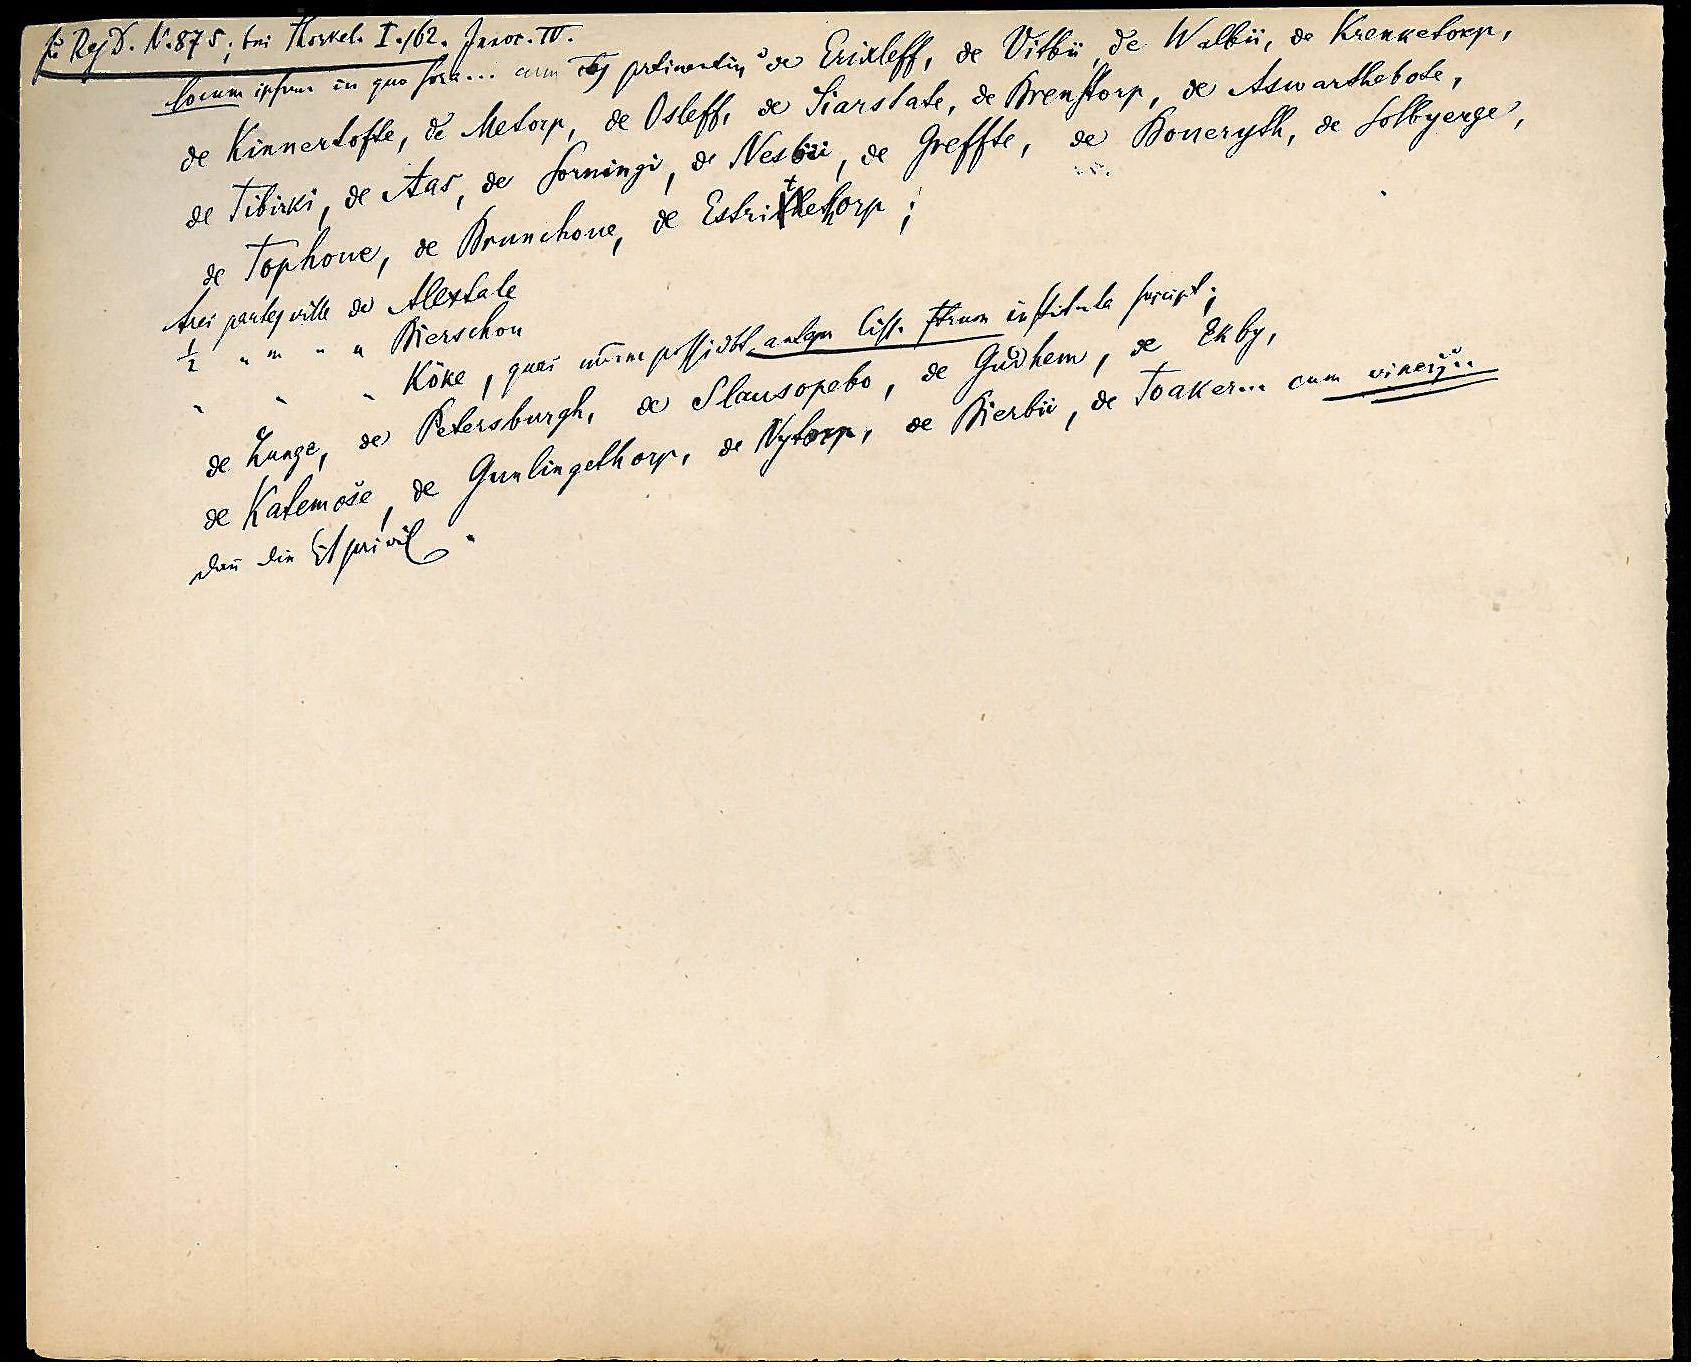 zu Reg D. N. 875; bei Thorkel. I. 162. Innoc. IV.
Locum ipsum in quo sora... cum pertinentiis de Erixleff, de Vitbÿ, de Walbÿ, de Krenketorp,
de Kinnertofte, de Metorp, de Osleff, de Siarstate, de Brenstorp, de Aswarthebote,
de Tibirki, de Aas, de Sorningi, de Nesbÿ, de Greffte, de Boueryth, de Solbyerge,
de Tophoue, de Brunchoue, de Estrithethorp;
tres partes ville de Alextale
½ " " " " Bierschou
" " " Köke, quas possidebt antequam Cist. institula suscipt;
de Lunge, de Petersburgh, de Slausopebo, de Gudhem, de Ekby,
de Katemose, de Gunlingethorp, de Nytorp, de Bierbÿ, de Toaker... cum
dann die privil.